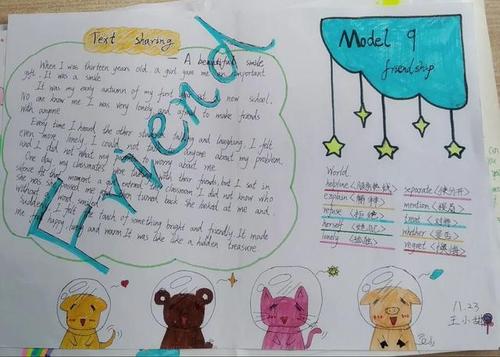 Text sharing
— A beautiful smile
When I was thirteen years old, a girl gave me an important
gift. It was a smile
It was my early autumn of my first at a new school.
No one knew me I was very lonely and afraid to make friends
with anyone
Every time I heard the other students talking and laughing, I felt
even more lonely, I could not talk to anyone about my problem.
and I did not what my worry about me
One day my classmates talking with their friends, but I sat in
silence At that moment, a girl entered the classroom I did not know who
she was passed me and then turned back She looked at me and,
without a word, smiled
Suddenly, I felt touch of something bright and friendly. It made
me feel happy, lively and warm It was like a hidden treasure
Friend
Model 9
friendship
World
hotline <服务热线>
explain <解释>
refuse <拒绝>
herself <她自己>
lonely <孤独>
separate <使分开>
mention <提及>
treat <对待>
whether <是否>
regret <懊悔>
11.23
王小